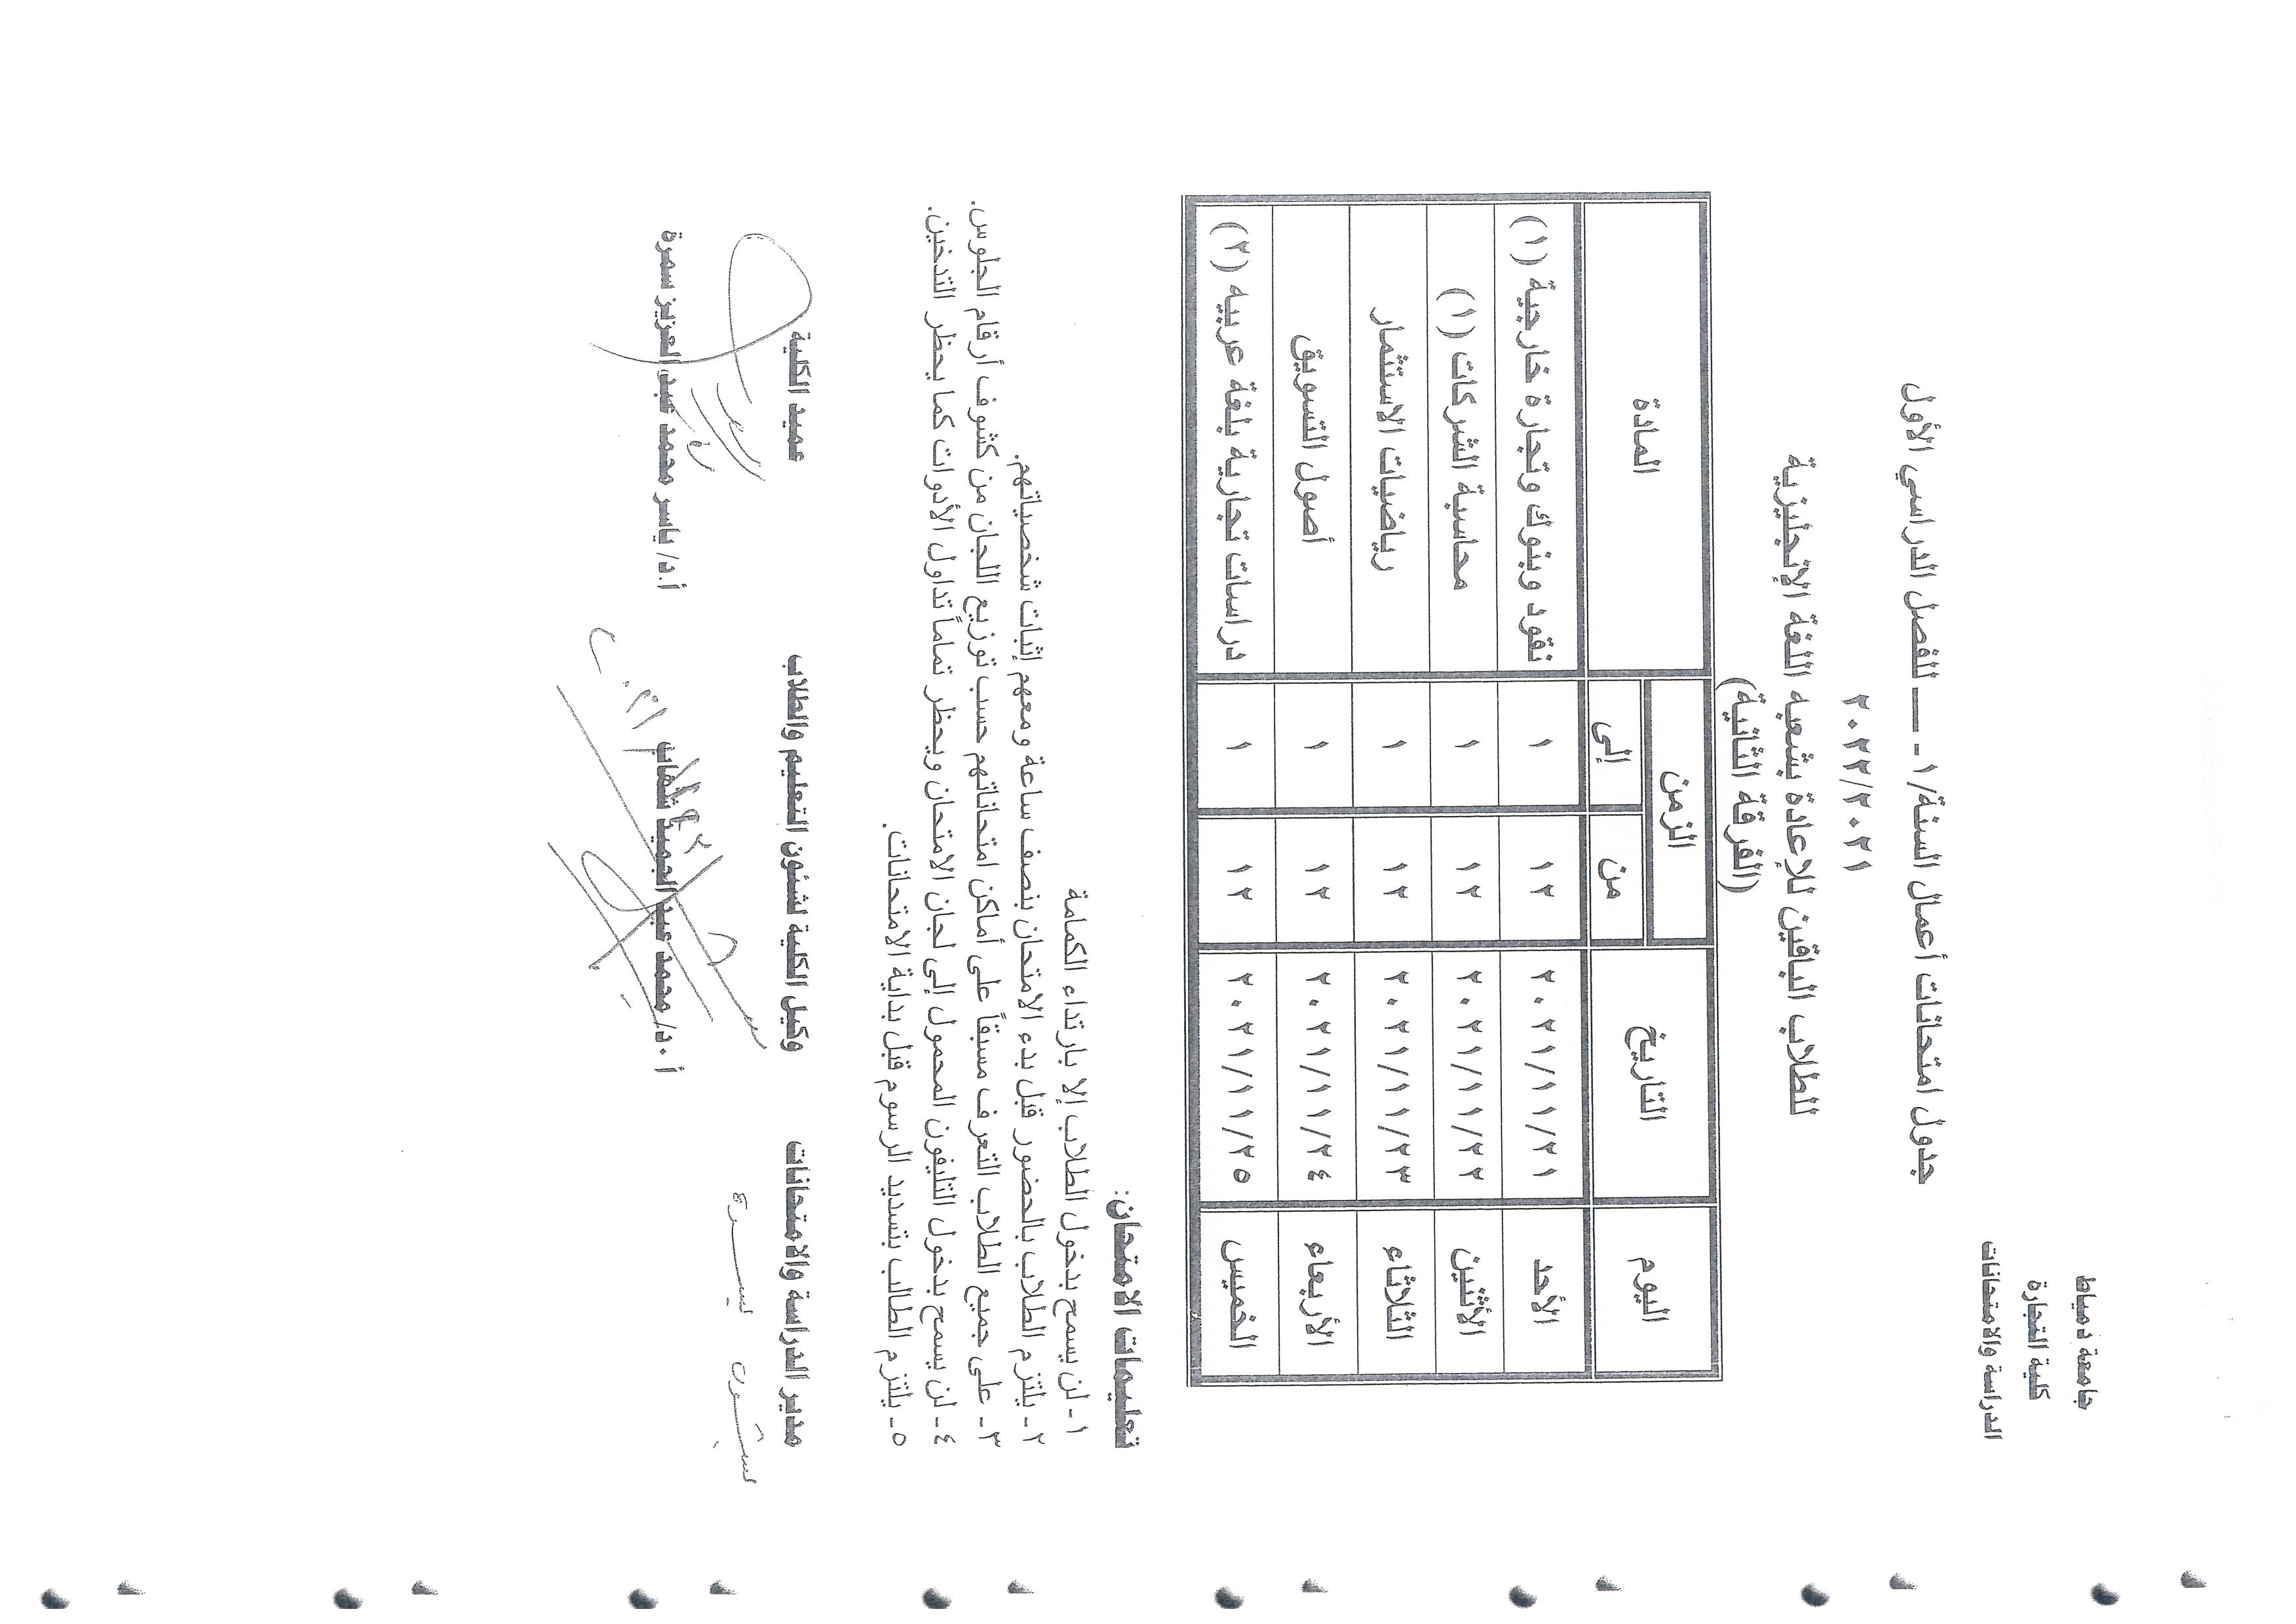 جامعة دمياط
كلية التجارة
الدراسة والامتحانات
جدول امتحانات أعمال السنة/١ - ــــ للفصل الدراسي الأول
٢٠٢٢/٢٠٢١
للطلاب الباقين للإعادة بشعبه اللغة الإنجليزية
(الفرقة الثانية)
اليوم التاريخ الزمن المادة
من إلى
الأحد ٢٠٢١/١١/٢١ ١٢ ١ نقود وبنوك وتجارة خارجية (١)
الأثنين ٢٠٢١/١١/٢٢ ١٢ ١ محاسبة الشركات (١)
الثلاثاء ٢٠٢١/١١/٢٣ ١٢ ١ رياضيات الاستثمار
الأربعاء ٢٠٢١/١١/٢٤ ١٢ ١ أصول التسويق
الخميس ٢٠٢١/١١/٢٥ ١٢ ١ دراسات تجارية بلغة عربيه (٢)
تعليمات الامتحان:
١- لن يسمح بدخول الطلاب إلا بارتداء الكمامة
٢- يلتزم الطلاب بالحضور قبل بدء الامتحان بنصف ساعة ومعهم إثبات شخصياتهم.
٣- على جميع الطلاب التعرف مسبقاً على أماكن امتحاناتهم حسب توزيع اللجان من كشوف أرقام الجلوس.
٤- لن يسمح بدخول التليفون المحمول إلى لجان الامتحان ويحظر تماماً تداول الأدوات كما يحظر التدخين.
٥- يلتزم الطالب بتسديد الرسوم قبل بداية الامتحانات.
مدير الدراسة والامتحانات وكيل الكلية لشئون التعليم والطلاب عميد الكلية
أ.د/ محمد عبد الحميد أ.د/ ياسر محمد عبد العزيز سمرة